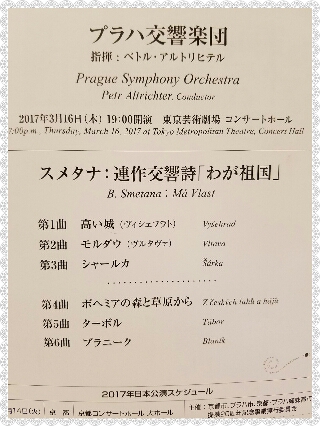 プラハ交響楽団
指揮：ペトル・アルトリヒテル
Prague Symphony Orchestra
Petr Altrichter, Conductor
2017年3月16日(木) 19:00開演 東京芸術劇場 コンサートホール
7:00p.m., Thursday, March 16, 2017 at Tokyo Metropolitan Theatre, Concert Hall
スメタナ：連作交響詩「わが祖国」
B. Smetana : Má Vlast
第1曲 高い城（ヴィシェフラト） Vyšehrad
第2曲 モルダウ（ヴルタヴァ） Vltava
第3曲 シャールカ Šárka
第4曲 ボヘミアの森と草原から Z českých luhů a hájů
第5曲 ターボル Tábor
第6曲 ブラニーク Blaník
2017年日本公演スケジュール
14日(火) 京都 京都コンサートホール 大ホール 主催：京都市、プラハ市、京都・プラハ